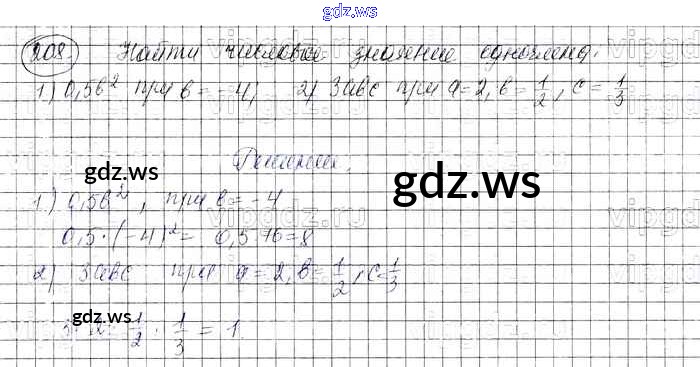 gdz.ws
208. Найти числовое значение одночлена.
1) 0,5b² при b = -4; 2) 3abc при a = 2, b = 1/2, c = 1/3
gdz.ws
Решение.
gdz.ws
1) 0,5b², при b = -4
0,5 · (-4)² = 0,5 · 16 = 8
2) 3abc при a = 2, b = 1/2, c = 1/3
gdz.ws
3 · 2 · 1/2 · 1/3 = 1